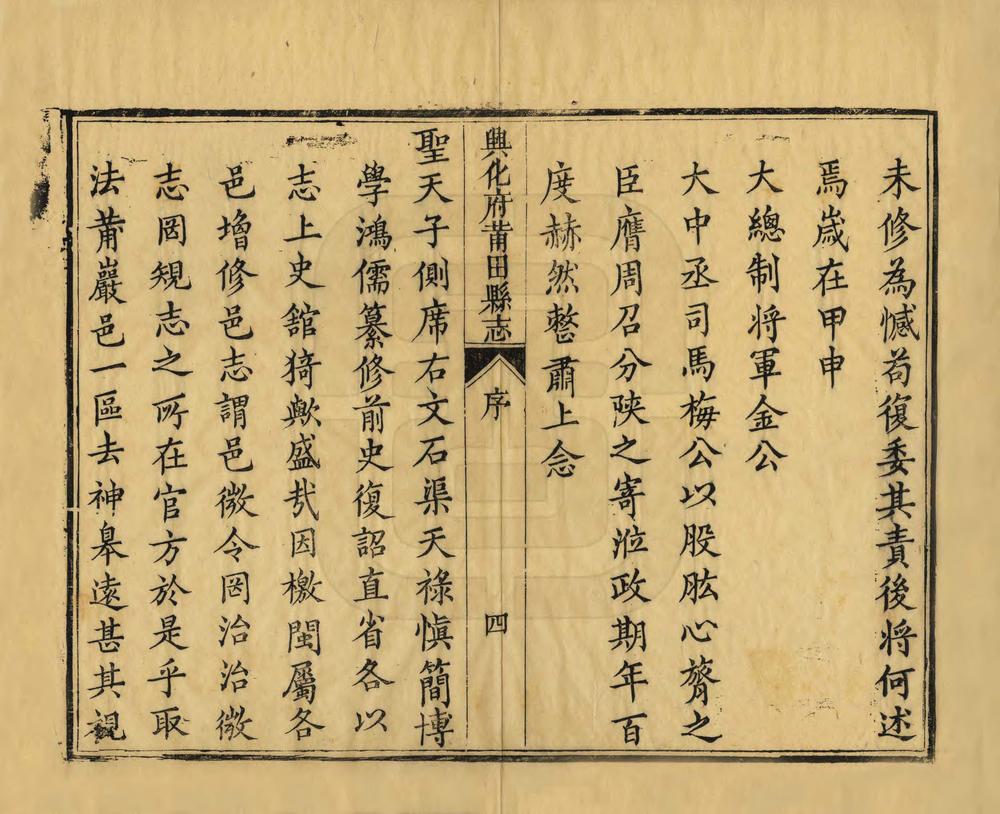 未修為憾苟復委其責後將何述
焉歲在甲申
大總制將軍金公
大中丞司馬梅公以股肱心膂之
臣膺周召分陝之寄涖政期年百
度赫然整肅上念
興化府莆田縣志
序
四
聖天子側席右文石渠天祿慎簡博
學鴻儒纂修前史復詔直省各以
志上史舘猗歟盛哉因檄閩屬各
邑增修邑志謂邑微令罔治治微
志罔規志之所在官方於是乎取
法莆巖邑一區去神臯遠甚其視